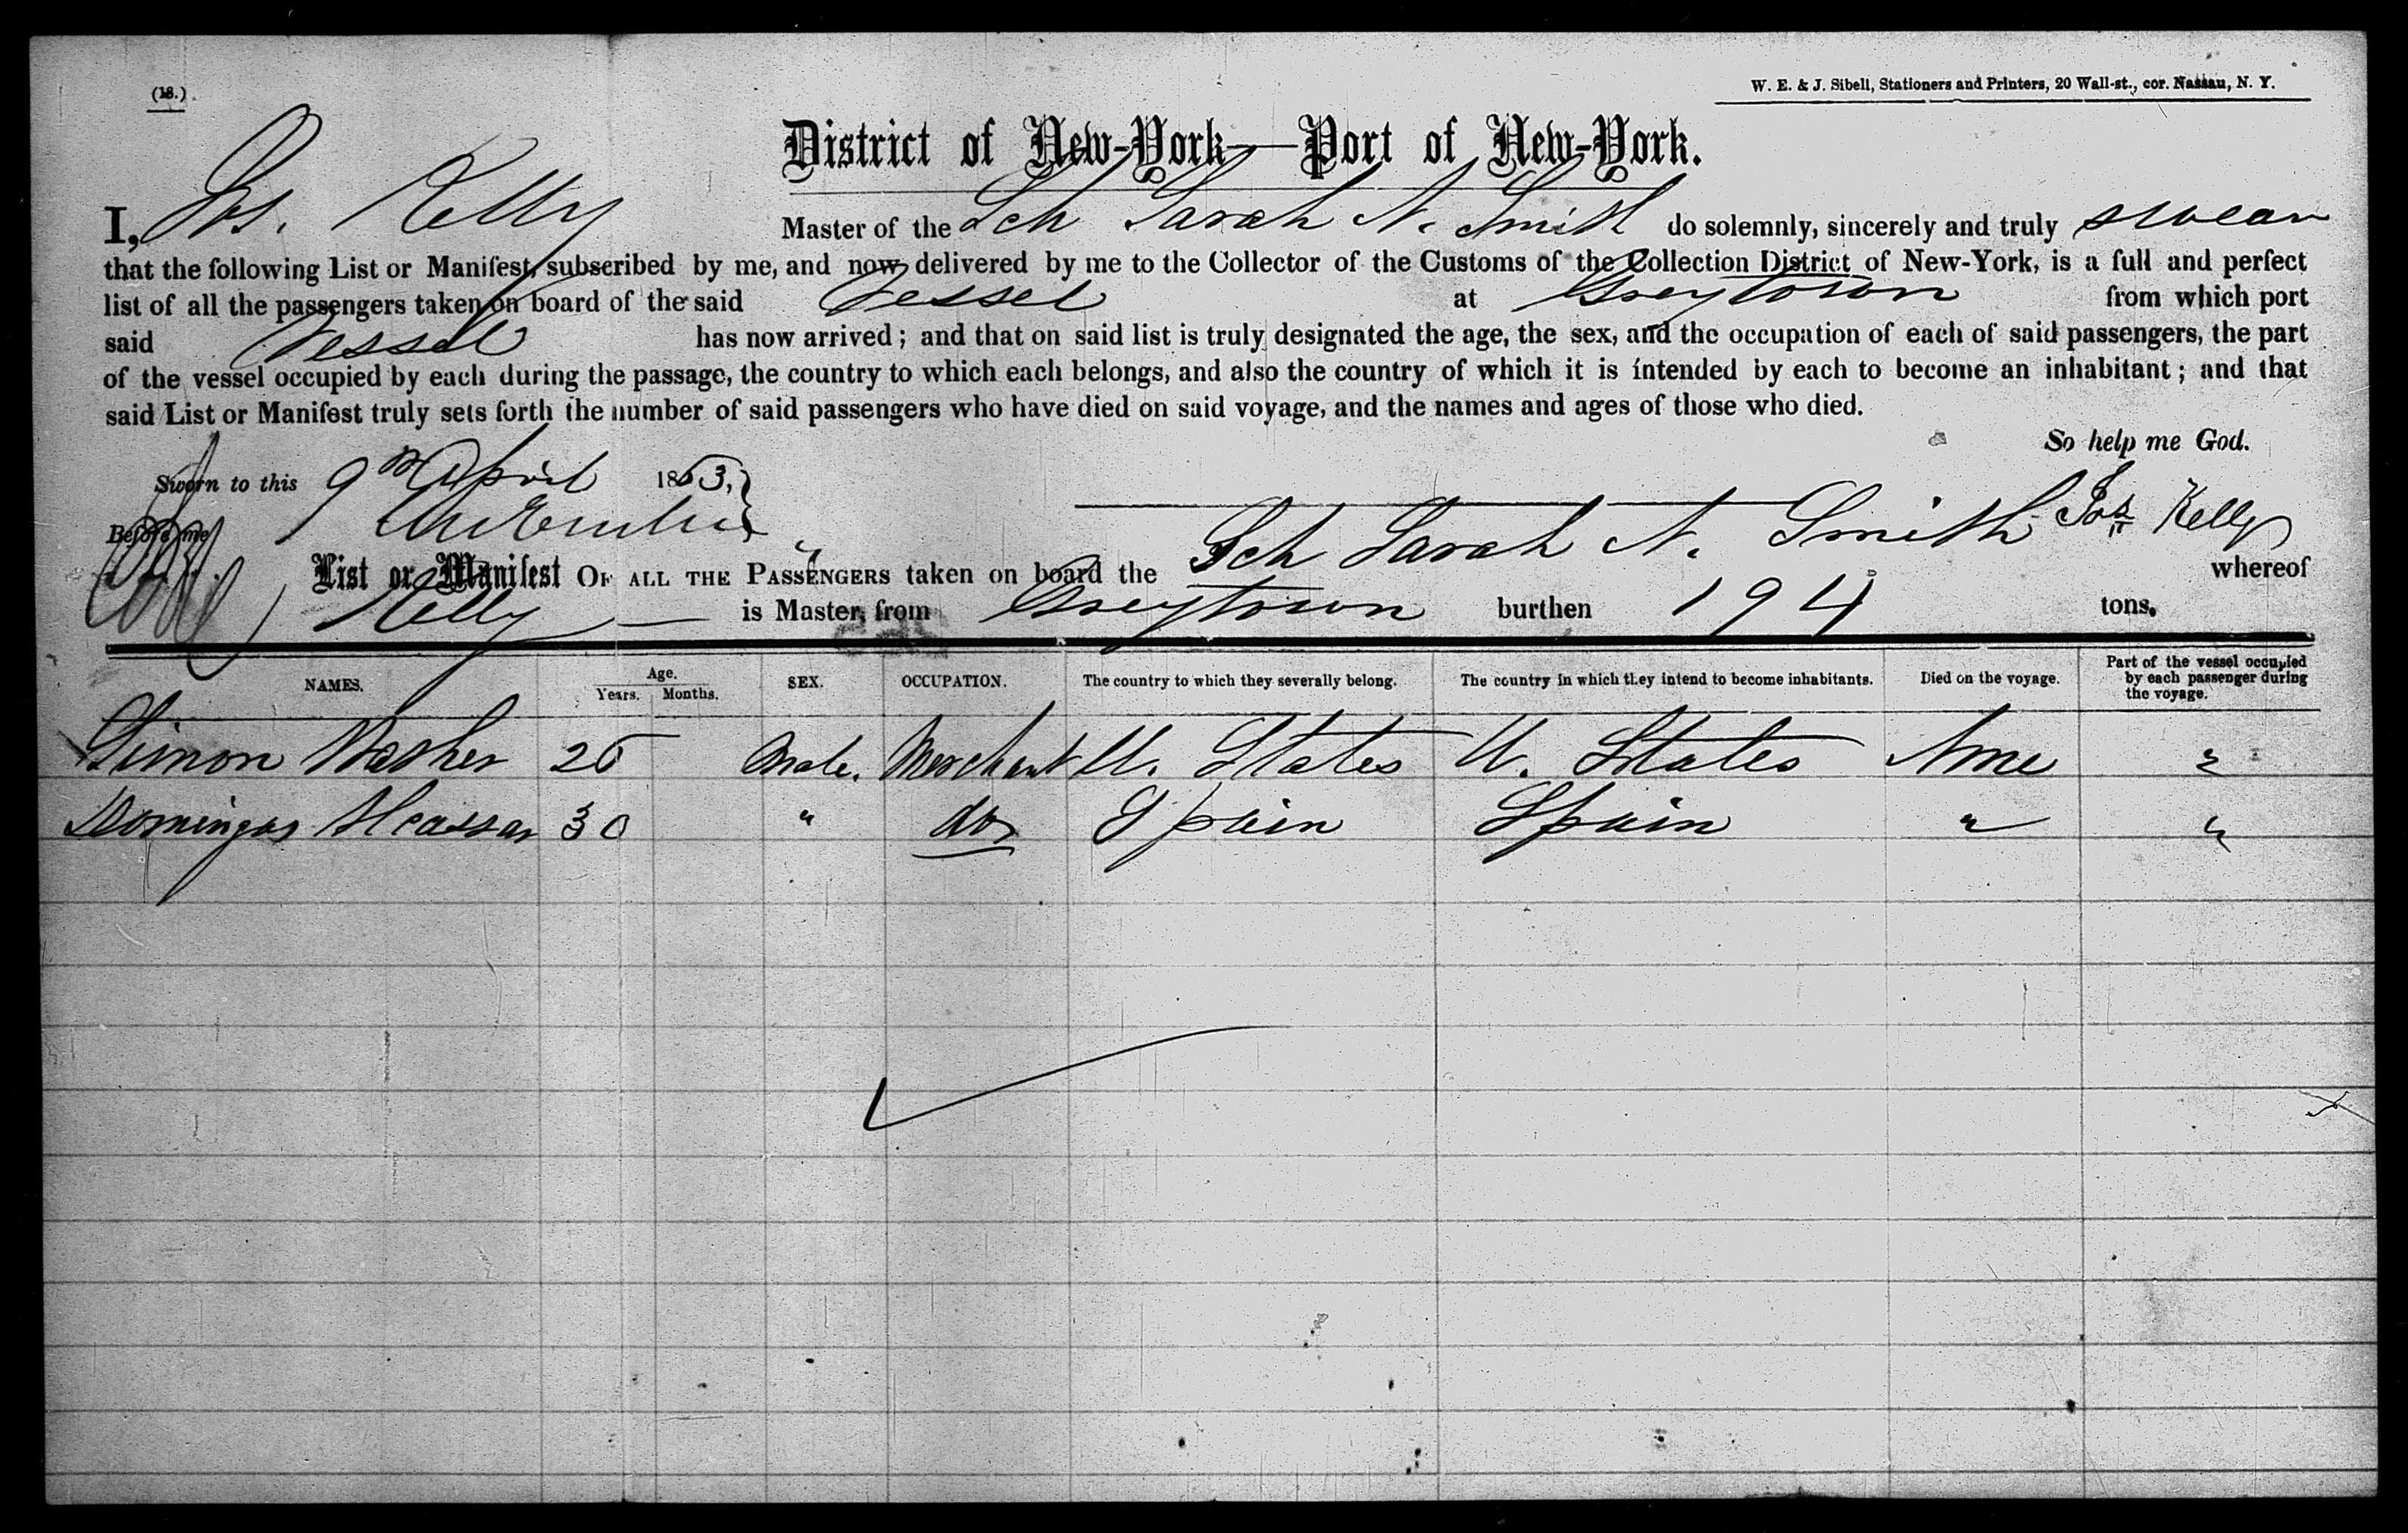 (18.)
W. E. & J. Sibell, Stationers and Printers, 20 Wall-st., cor. Nassau, N. Y.
District of New-York—Port of New-York.
I, Jos. Kelly Master of the Sch Sarah N. Smith do solemnly, sincerely and truly swear
that the following List or Manifest, subscribed by me, and now delivered by me to the Collector of the Customs of the Collection District of New-York, is a full and perfect
list of all the passengers taken on board of the said Vessel at Greytown from which port
said Vessel has now arrived; and that on said list is truly designated the age, the sex, and the occupation of each of said passengers, the part
of the vessel occupied by each during the passage, the country to which each belongs, and also the country of which it is intended by each to become an inhabitant; and that
said List or Manifest truly sets forth the number of said passengers who have died on said voyage, and the names and ages of those who died.
So help me God.
Sworn to this 9th April 1863,
Before me
Jos Kelly
List or Manifest OF ALL THE PASSENGERS taken on board the Sch Sarah N. Smith whereof
Kelly is Master, from Greytown burthen 194 tons.
NAMES. Age. Years. Months. SEX. OCCUPATION. The country to which they severally belong. The country in which they intend to become inhabitants. Died on the voyage. Part of the vessel occupied by each passenger during the voyage.
Simon 25 Male. Merchant U. States U. States None "
Domingos 30 " do Spain Spain " "